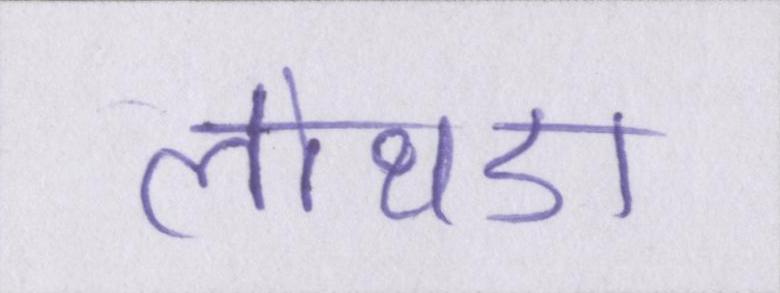 लोथडा